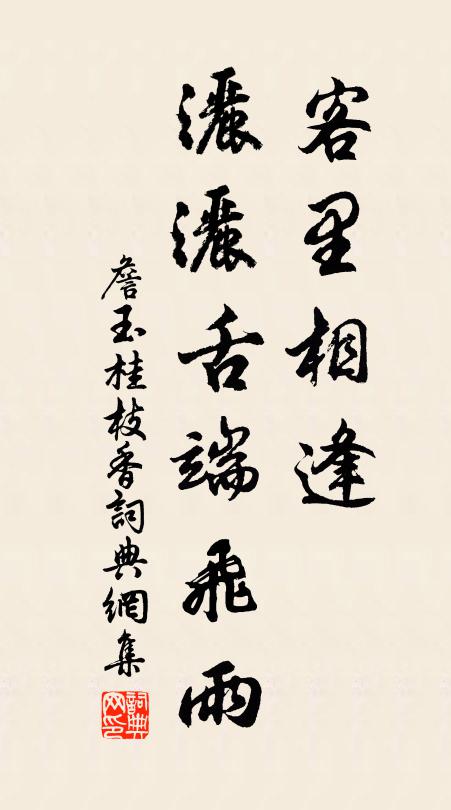 客里相逢
灑灑舌端飛雨
詹玉桂枝香詞典網集
詞典网印